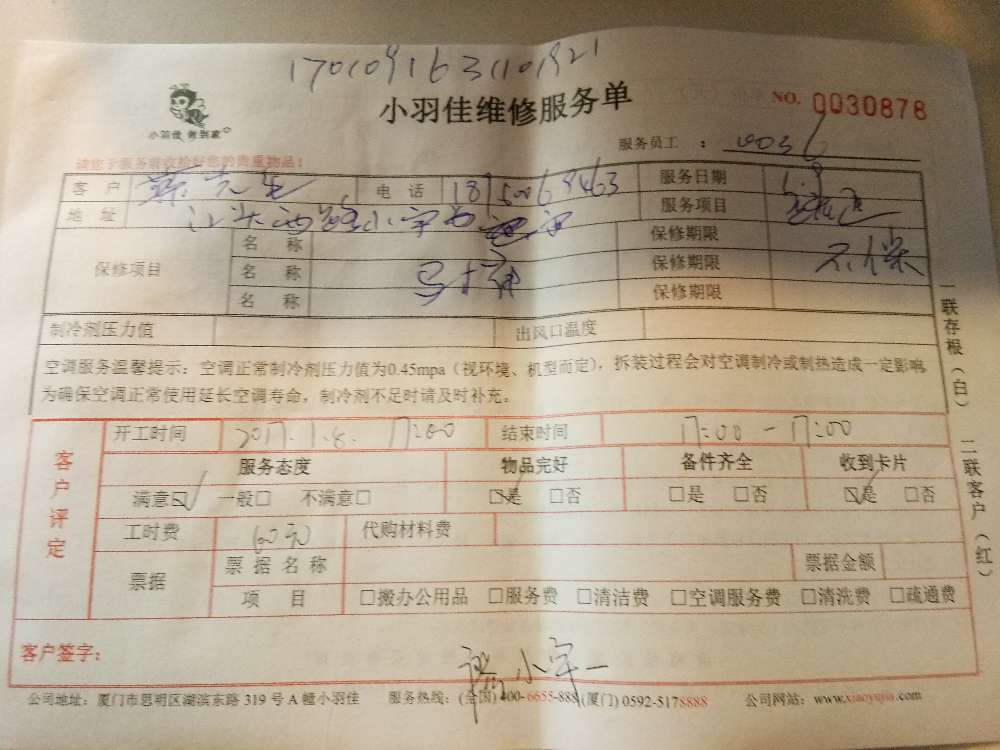 小羽佳维修服务单
NO. 0030878
小羽佳 做到家
服务员工 : 0036
请您于服务前收拾好您的贵重物品!
客户 电话 服务日期
地址 服务项目
保修项目 名称 保修期限
名称 马桶 保修期限 不保
名称 保修期限
制冷剂压力值 出风口温度
空调服务温馨提示：空调正常制冷剂压力值为0.45mpa（视环境、机型而定），拆装过程会对空调制冷或制热造成一定影响
为确保空调正常使用延长空调寿命，制冷剂不足时请及时补充。
一联存根（白） 二联客户（红）
客户评定
开工时间 2017.1.8. 17:00 结束时间 17:00-17:00
服务态度 物品完好 备件齐全 收到卡片
满意☑ 一般□ 不满意□ ☑是 □否 □是 □否 ☑是 □否
工时费 60元 代购材料费
票据 票据名称 票据金额
项目 □搬办公用品 □服务费 □清洁费 □空调服务费 □清洗费 □疏通费
客户签字：
公司地址：厦门市思明区湖滨东路 319 号 A 幢小羽佳 服务热线：(全国) 400-6655-888 (厦门) 0592-5178888 公司网站：www.xiaoyujia.com